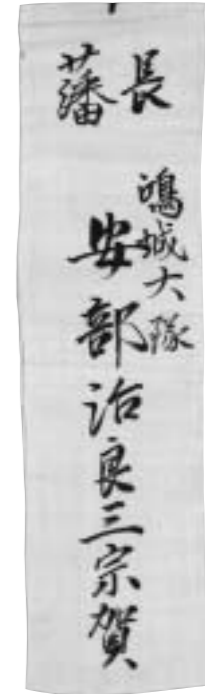 長藩
鴻城大隊
安部治良三宗賀